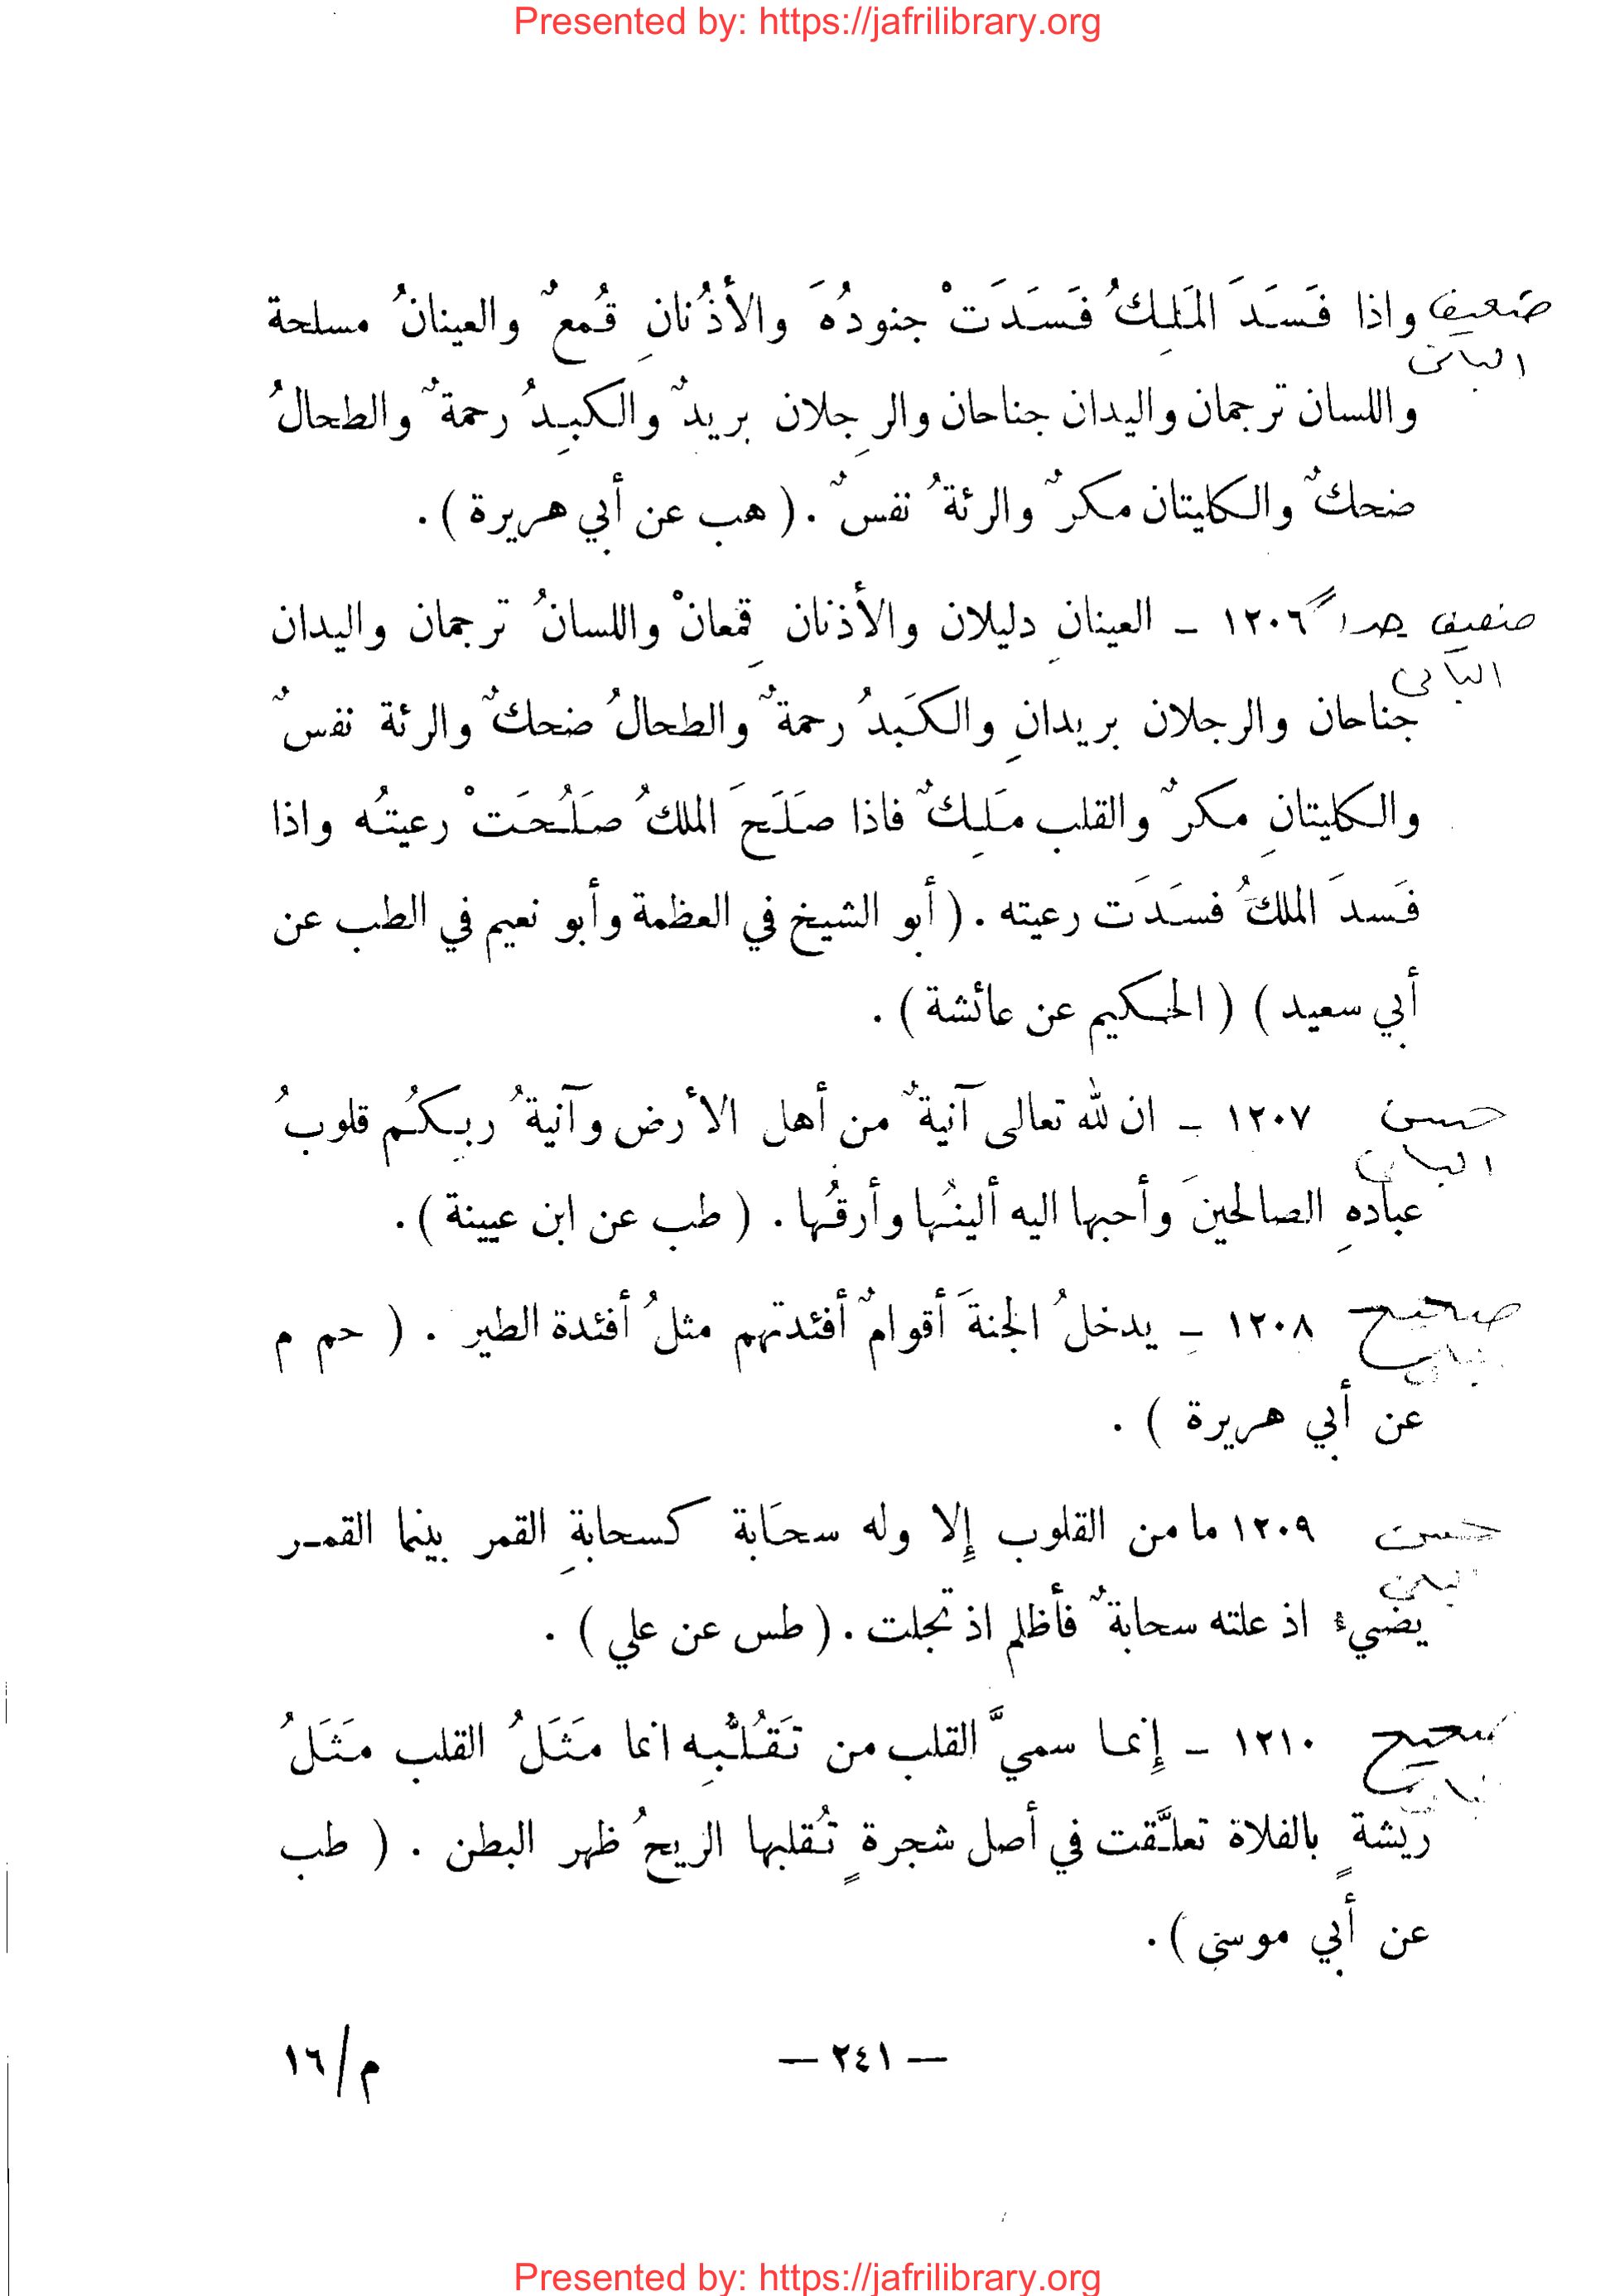 Presented by: https://jafrilibrary.org
ضعيف واذا فَسَدَ المَلِكُ فَسَدَتْ جنودُهُ والأذُنانِ قُمعٌ والعينانُ مسلحة
البانى
واللسان ترجمان واليدان جناحان والرِجلان بريدٌ والكبِدُ رحمةٌ والطحالُ
ضحكٌ والكليتان مكرٌ والرئةُ نفسٌ . ( هب عن أبي هريرة ) .
ضعيف جداً ١٢٠٦ - العينانِ دليلان والأذنان قِمعانْ واللسانُ ترجمان واليدان
البانى
جناحان والرجلان بريدانِ والكَبدُ رحمةٌ والطحالُ ضحكٌ والرئة نفسٌ
والكليتانِ مكرٌ والقلب مَلِكٌ فاذا صَلَحَ الملكُ صَلُحَتْ رعيتُه واذا
فَسدَ الملكُ فسَدَت رعيته . ( أبو الشيخ في العظمة وأبو نعيم في الطب عن
أبي سعيد ) ( الحكيم عن عائشة ) .
حسن ١٢٠٧ - ان لله تعالى آنيةٌ من أهل الأرض وآنيةُ ربِكُم قلوبُ
البانى
عبادهِ الصالحينَ وأحبها اليه ألينُها وأرقُها . ( طب عن ابن عيينة ) .
صحيح ١٢٠٨ - يدخلُ الجنةَ أقوامٌ أفئدتهم مثلُ أفئدة الطير . ( حم م
عن أبي هريرة ) .
حسن ١٢٠٩ ما من القلوب إِلا وله سحَابة كسحابةِ القمر بينما القمر
يضيء اذ علته سحابةٌ فأظلم اذ تجلت . ( طس عن علي ) .
صحيح ١٢١٠ - إِنما سميَّ القلب من تَقَلُّبِه انما مَثَلُ القلب مَثَلُ
ريشةٍ بالفلاة تعلَّقت في أصل شجرةٍ تُقلبها الريحُ ظهر البطن . ( طب
عن أبي موسى ) .
— ٢٤١ —
م/١٦
Presented by: https://jafrilibrary.org